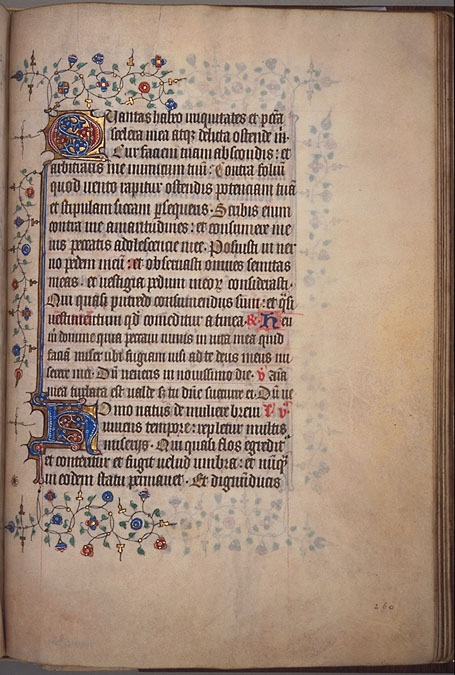 Quantas habeo iniquitates et pcca
scelera mea atq; delicta ostende m.
Cur faciem tuam abscondis: et
arbitraris me inimicum tuu: Contra foliu
quod uento rapitur ostendis potenciam tua
et stipulam siccam psequeris. Scribis enim
contra me amaritudines: et consumere me
uis peccatis adolescencie mee. Posuisti in ner
uo pedem meu: et obseruasti omnes semitas
meas. et uestigia pedum meor considerasti.
Qui quasi putredo consumendus sum: et qsi
uestimentum qd comeditur a tinea. R Heu
m domine quia peccaui nimis in uita mea quid
faciam miser ubi fugiam nisi ad te deus meus mi
serere mei. Du ueneris in nouissimo die. V aia
mea turbata est ualde s; tu dne succurre ei. Du ue
Homo natus de muliere breui
uiuens tempore: repletur multis
miserijs. Qui quasi flos egredit
et conteritur et fugit uelud umbra: et nuqj
in eodem statu permanet. Et dignum ducis
260